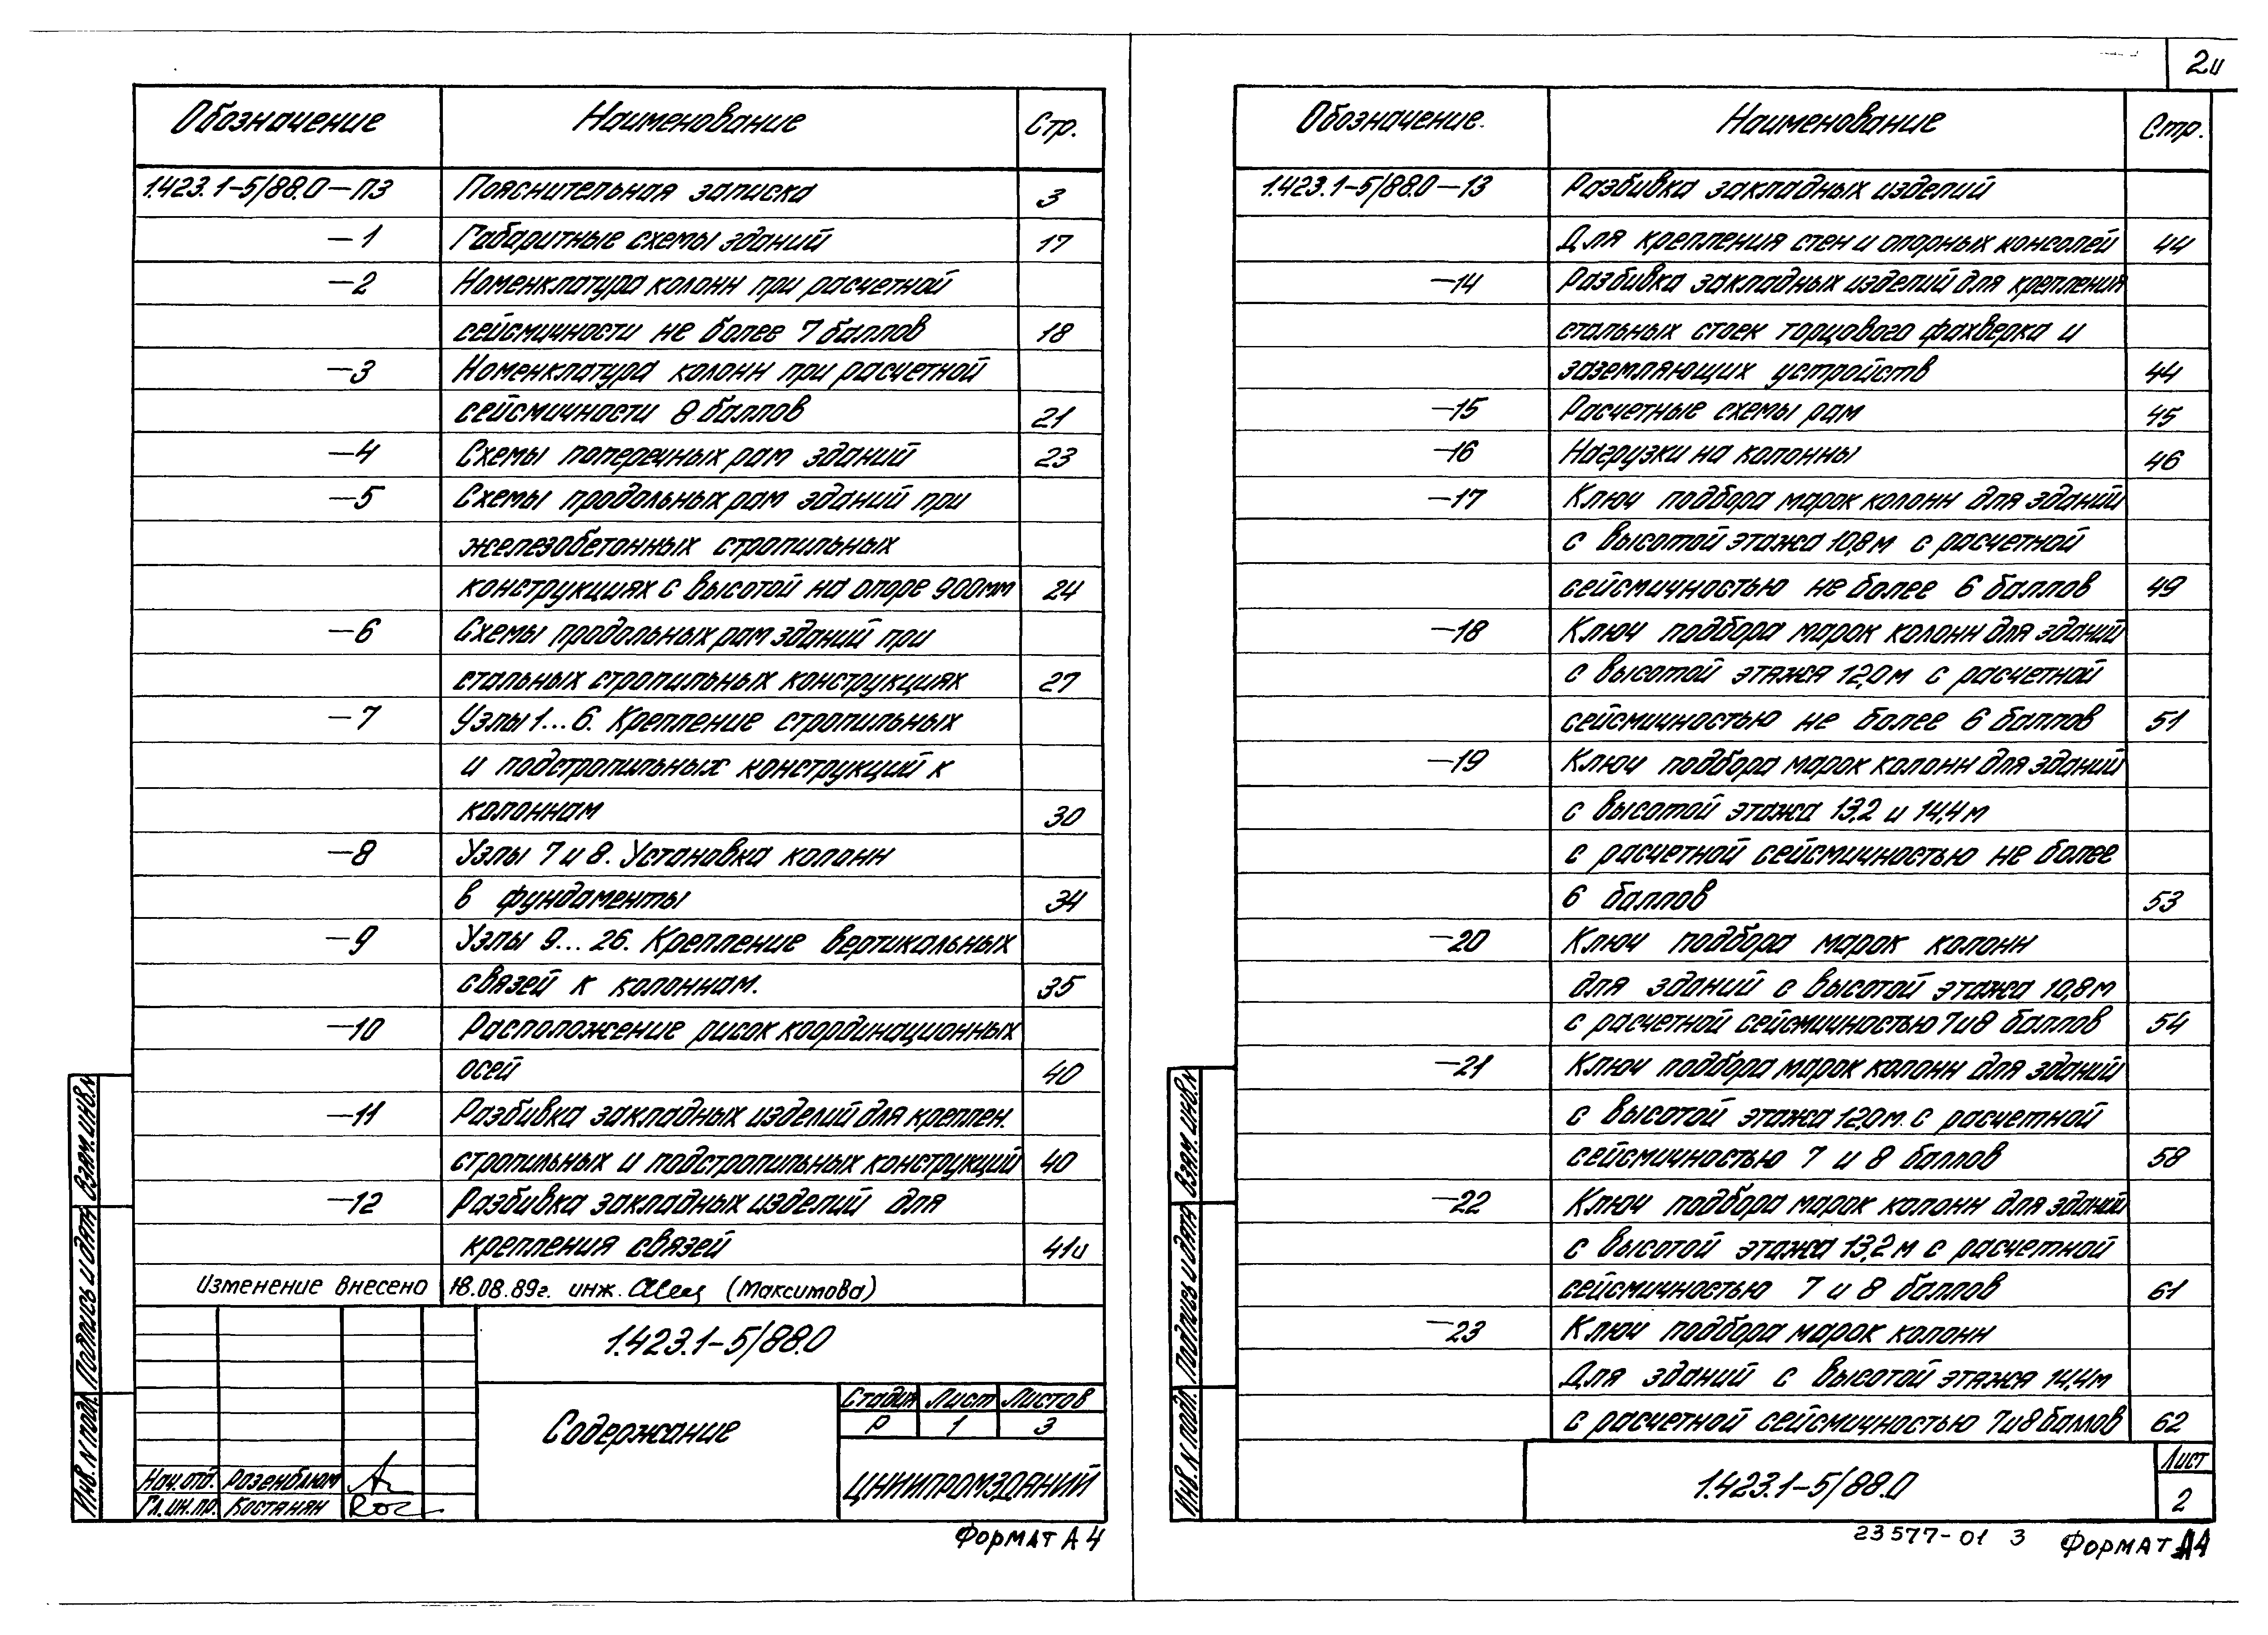 2и
Обозначение Наименование Стр.
1.423.1-5/88.0-ПЗ Пояснительная записка 3
-1 Габаритные схемы зданий 17
-2 Номенклатура колонн при расчетной
сейсмичности не более 7 баллов 18
-3 Номенклатура колонн при расчетной
сейсмичности 8 баллов 21
-4 Схемы поперечных рам зданий 23
-5 Схемы продольных рам зданий при
железобетонных стропильных
конструкциях с высотой на опоре 900мм 24
-6 Схемы продольных рам зданий при
стальных стропильных конструкциях 27
-7 Узлы 1...6. Крепление стропильных
и подстропильных конструкций к
колоннам 30
-8 Узлы 7 и 8. Установка колонн
в фундаменты 34
-9 Узлы 9...26. Крепление вертикальных
связей к колоннам. 35
-10 Расположение рисок координационных
осей 40
-11 Разбивка закладных изделий для креплен.
стропильных и подстропильных конструкций 40
-12 Разбивка закладных изделий для
крепления связей 41и
Изменение внесено 18.08.89г. инж. (Максимова)
1.423.1-5/88.0
Содержание
Стадия Лист Листов
Р 1 3
ЦНИИПРОМЗДАНИЙ
Нач.отд. Розенблюм
Гл.ин.пр. Костанян
Инв. N подл. Подпись и дата Взам. инв. N
Формат А4
Обозначение. Наименование Стр.
1.423.1-5/88.0-13 Разбивка закладных изделий
Для крепления стен и опорных консолей 44
-14 Разбивка закладных изделий для крепления
стальных стоек торцового фахверка и
заземляющих устройств 44
-15 Расчетные схемы рам 45
-16 Нагрузки на колонны 46
-17 Ключ подбора марок колонн для зданий
с высотой этажа 10,8м с расчетной
сейсмичностью не более 6 баллов 49
-18 Ключ подбора марок колонн для зданий
с высотой этажа 12,0м с расчетной
сейсмичностью не более 6 баллов 51
-19 Ключ подбора марок колонн для зданий
с высотой этажа 13,2 и 14,4м
с расчетной сейсмичностью не более
6 баллов 53
-20 Ключ подбора марок колонн
для зданий с высотой этажа 10,8м
с расчетной сейсмичностью 7и8 баллов 54
-21 Ключ подбора марок колонн для зданий
с высотой этажа 12,0м. с расчетной
сейсмичностью 7 и 8 баллов 58
-22 Ключ подбора марок колонн для зданий
с высотой этажа 13,2м с расчетной
сейсмичностью 7 и 8 баллов 61
-23 Ключ подбора марок колонн
Для зданий с высотой этажа 14,4м
с расчетной сейсмичностью 7и8 баллов 62
1.423.1-5/88.0
Лист
2
Инв. N подл. Подпись и дата Взам. инв. N
23577-01 3 Формат А4